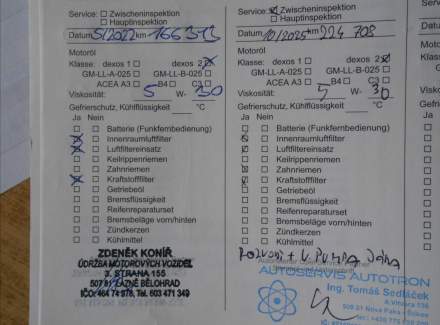 Service: ☐ Zwischeninspektion
☐ Hauptinspektion
Datum 5/2022 km 166 313
Motoröl
Klasse: dexos 1 ☐ dexos 2 ☒
GM-LL-A-025 ☐ GM-LL-B-025 ☐
ACEA A3 ☐ B4 ☐ C3 ☐
Viskosität: 5 W- 30
Gefrierschutz, Kühlflüssigkeit °C
Ja Nein
☐ ☐ Batterie (Funkfernbedienung)
☒ ☐ Innenraumluftfilter
☒ ☐ Luftfiltereinsatz
☐ ☐ Keilrippenriemen
☐ ☐ Zahnriemen
☒ ☐ Kraftstofffilter
☐ ☐ Getriebeöl
☐ ☐ Bremsflüssigkeit
☐ ☐ Reifenreparaturset
☐ ☐ Bremsbeläge vorn/hinten
☐ ☐ Zündkerzen
☐ ☐ Kühlmittel
ZDENĚK KONÍŘ
ÚDRŽBA MOTOROVÝCH VOZIDEL
3. STRANA 155
507 81 LÁZNĚ BĚLOHRAD
IČO: 464 74 978, Tel. 603 471 349
Service: ☒ Zwischeninspektion
☐ Hauptinspektion
Datum 10/2025 km 224 708
Motoröl
Klasse: dexos 1 ☐ dexos 2 ☒
GM-LL-A-025 ☐ GM-LL-B-025 ☐
ACEA A3 ☐ B4 ☐ C3 ☐
Viskosität: 5 W- 30
Gefrierschutz, Kühlflüssigkeit °C
Ja Nein
☐ ☐ Batterie (Funkfernbedienung)
☒ ☐ Innenraumluftfilter
☒ ☐ Luftfiltereinsatz
☐ ☐ Keilrippenriemen
☒ ☐ Zahnriemen
☒ ☐ Kraftstofffilter
☐ ☐ Getriebeöl
☐ ☐ Bremsflüssigkeit
☐ ☐ Reifenreparaturset
☐ ☐ Bremsbeläge vorn/hinten
☐ ☐ Zündkerzen
☐ ☐ Kühlmittel
ROZVODY + V. PUMPA
AUTOSERVIS AUTOTRON
Ing. Tomáš Sedláček
509 01 Nová Paka